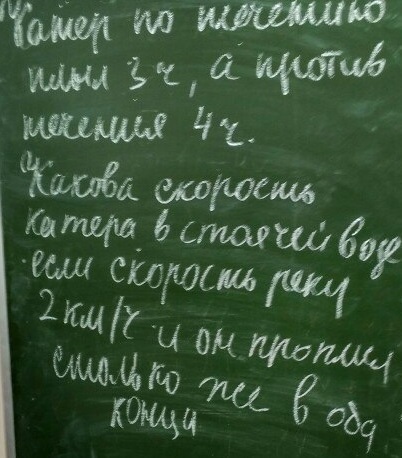 Катер по течению
плыл 3ч, а против
течения 4ч.
Какова скорость
катера в стоячей воде
если скорость реки
2 км/ч и он проплыл
столько же в оба
конца